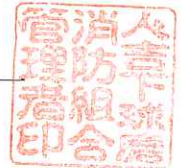 人吉下球磨
消防組合
管理者印